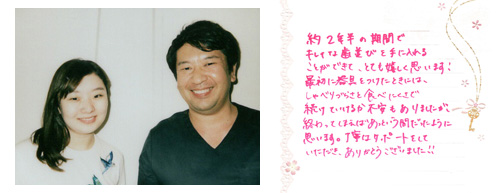 約2年半の期間で
きれいな歯並びを手に入れる
ことができて、とても嬉しく思います！
最初に器具をつけたときには、
しゃべりづらさと食べにくさで
続けていけるか不安もありましたが、
終わってしまえばあっという間だったように
思います。丁寧なサポートをして
いただき、ありがとうございました!!